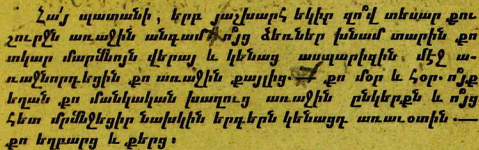 Հա՛յ պատանի, երբ յաշխարհ եկիր զո՞վ տեսար քու
շուրջն առաջին անգամ. ո՞յց ձեռներ խնամ տարին քո
տկար մարմնոյն վերայ և կենաց ասպարիզին մէջ ա-
ռաջնորդեցին քո առաջին քայլից.— քո մօր և հօր. ո՞յք
եղան քո մանկական խաղուց առաջին ընկերքն և ո՞յց
հետ մրմնջեցիր նախկին երգերն կենացդ առաւօտին.—
քո եղբարց և քերց: